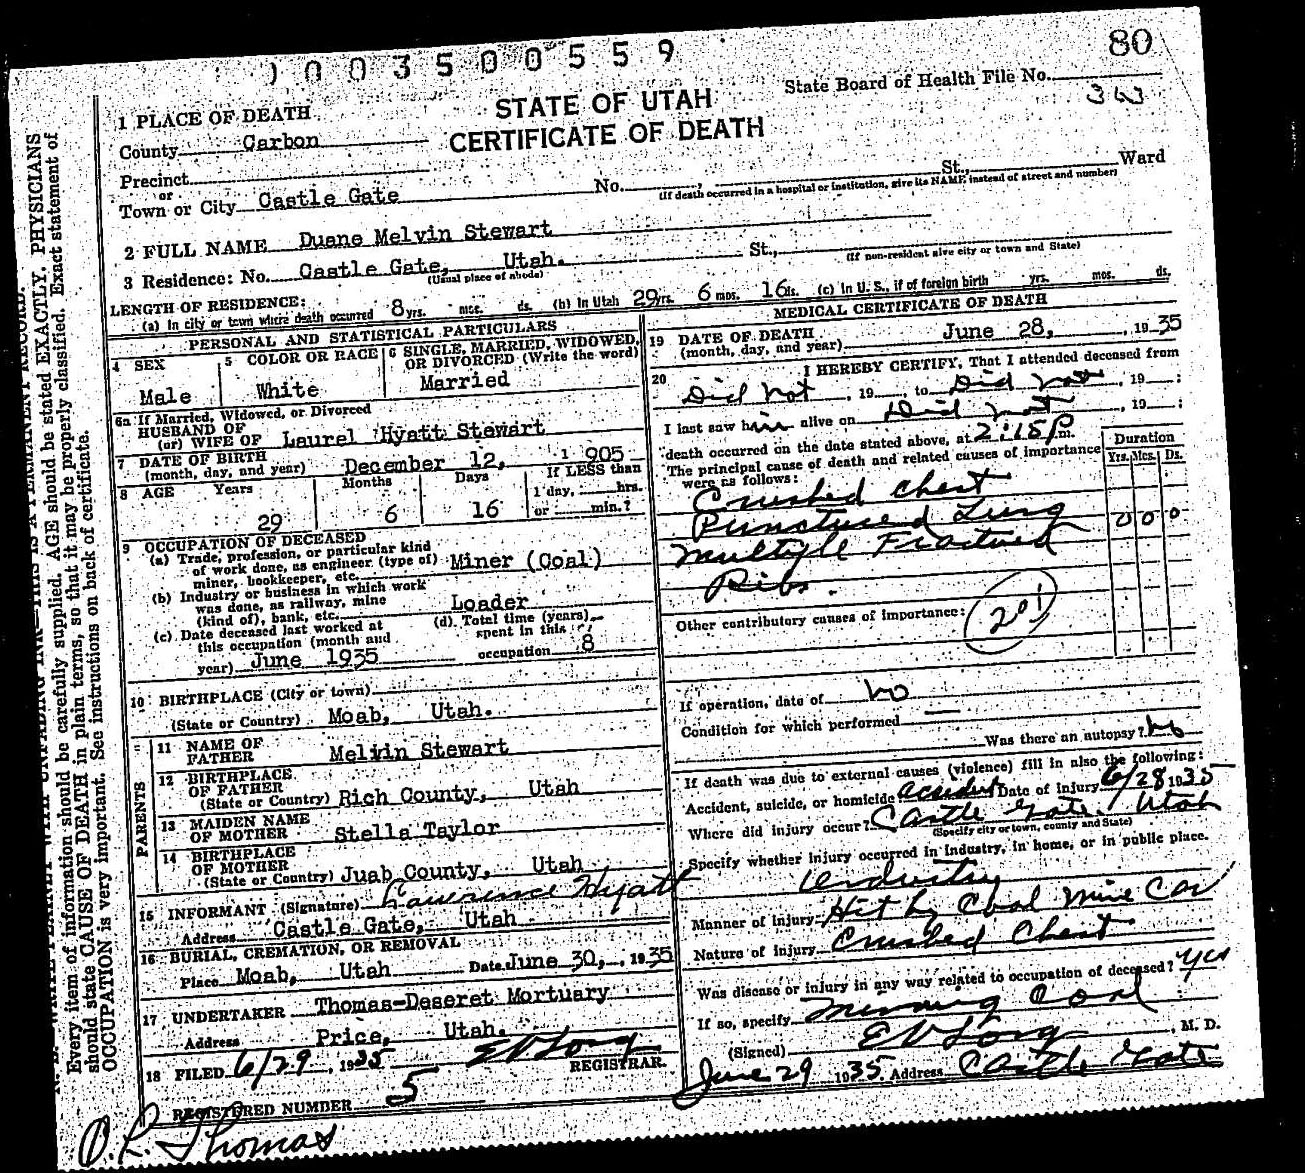 0 0 3 5 0 0 5 5 9
80
State Board of Health File No.
STATE OF UTAH
CERTIFICATE OF DEATH
1 PLACE OF DEATH
County Carbon
Precinct
or
Town or City Castle Gate No. , St., Ward
(If death occurred in a hospital or institution, give its NAME instead of street and number)
2 FULL NAME Duane Melvin Stewart
3 Residence: No. Castle Gate, Utah. St.,
(Usual place of abode) (If non-resident give city or town and State)
LENGTH OF RESIDENCE:
(a) In city or town where death occurred 8 yrs. mos. ds. (b) In Utah 29 yrs. 6 mos. 16 ds. (c) In U. S., if of foreign birth yrs. mos. ds.
PERSONAL AND STATISTICAL PARTICULARS
4 SEX Male
5 COLOR OR RACE White
6 SINGLE, MARRIED, WIDOWED, OR DIVORCED (Write the word) Married
6a If Married, Widowed, or Divorced
HUSBAND OF
(or) WIFE OF Laurel Hyatt Stewart
7 DATE OF BIRTH
(month, day, and year) December 12, 1905
8 AGE Years 29 Months 6 Days 16 If LESS than
1 day, hrs.
or min.?
9 OCCUPATION OF DECEASED
(a) Trade, profession, or particular kind
of work done, as engineer (type of)
miner, bookkeeper, etc. Miner (Coal)
(b) Industry or business in which work
was done, as railway, mine
(kind of), bank, etc. Loader
(c) Date deceased last worked at
this occupation (month and
year) June 1935
(d). Total time (years)
spent in this
occupation 8
10 BIRTHPLACE (City or town)
(State or Country) Moab, Utah.
PARENTS
11 NAME OF
FATHER Melvin Stewart
12 BIRTHPLACE
OF FATHER
(State or Country) Rich County, Utah
13 MAIDEN NAME
OF MOTHER Stella Taylor
14 BIRTHPLACE
OF MOTHER
(State or Country) Juab County, Utah
15 INFORMANT (Signature) Lawrence Hyatt
Address Castle Gate, Utah
16 BURIAL, CREMATION, OR REMOVAL
Place Moab, Utah Date June 30, 1935
17 UNDERTAKER Thomas-Deseret Mortuary
Address Price, Utah.
18 FILED 6/29, 1935 E V Long
REGISTRAR.
REGISTERED NUMBER 5
O. L. Thomas
MEDICAL CERTIFICATE OF DEATH
19 DATE OF DEATH
(month, day, and year) June 28, 1935
20 I HEREBY CERTIFY, That I attended deceased from
Did not, 19 to Did not, 19 ;
I last saw him alive on Did not, 19 ;
death occurred on the date stated above, at 2:15 P m.
The principal cause of death and related causes of importance
were as follows:
Duration
Yrs. Mos. Ds.
Crushed chest
Punctured Lung 0 0 0
Multiple Fractured
Ribs.
Other contributory causes of importance: 201
If operation, date of no
Condition for which performed
Was there an autopsy? no
If death was due to external causes (violence) fill in also the following:
Accident, suicide, or homicide accident Date of injury 6/28 1935
Where did injury occur? Castle Gate, Utah
(Specify city or town, county and State)
Specify whether injury occurred in industry, in home, or in public place.
Industry
Manner of injury Hit by Coal Mine Car
Nature of injury Crushed Chest
Was disease or injury in any way related to occupation of deceased? Yes
If so, specify Mining Coal
(Signed) E V Long, M. D.
June 29 1935. Address Castle Gate
Every item of information should be carefully supplied. AGE should be stated EXACTLY. PHYSICIANS
should state CAUSE OF DEATH in plain terms, so that it may be properly classified. Exact statement of
OCCUPATION is very important. See instructions on back of certificate.